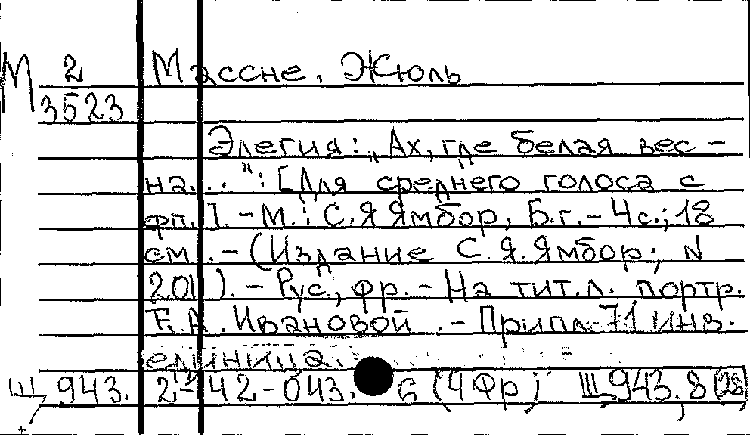 М 2 Массне, Жюль
3523
Элегия: „Ах, где белая вес-
на..." : [Для среднего голоса с
фп.]. - М.: С.Я Ямбор, Б.г. - 4 с.; 18
см. - (Издание С.Я. Ямбор; N
201). - Рус., фр. - На тит.л. портр.
Е.А. Ивановой. - Припл. 71 инв.
единица.
Щ 943. 2-42-043. 6 (4 Фр) Щ943.8(28)